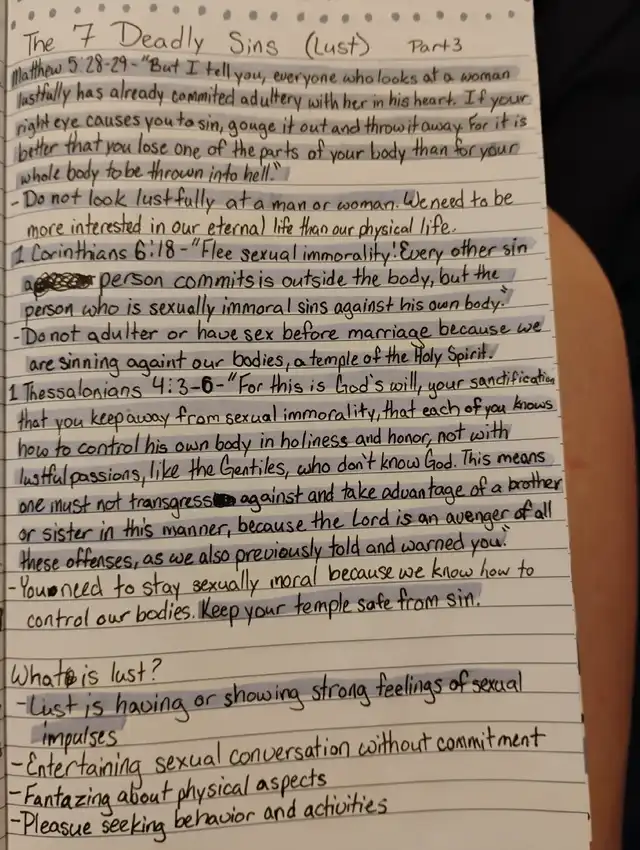 The 7 Deadly Sins (Lust) Part 3
Matthew 5:28-29-"But I tell you, everyone who looks at a woman
lustfully has already commited adultery with her in his heart. If your
right eye causes you to sin, gouge it out and throw it away. For it is
better that you lose one of the parts of your body than for your
whole body to be thrown into hell."
-Do not look lustfully at a man or woman. We need to be
more interested in our eternal life than our physical life.
1 Corinthians 6:18-"Flee sexual immorality! Every other sin
a person commits is outside the body, but the
person who is sexually immoral sins against his own body."
-Do not adulter or have sex before marriage because we
are sinning againt our bodies, a temple of the Holy Spirit.
1 Thessalonians 4:3-6-"For this is God's will, your sanctification
that you keep away from sexual immorality, that each of you knows
how to control his own body in holiness and honor, not with
lustful passions, like the Gentiles, who don't know God. This means
one must not transgress against and take advantage of a brother
or sister in this manner, because the Lord is an avenger of all
these offenses, as we also previously told and warned you."
-You need to stay sexually moral because we know how to
control our bodies. Keep your temple safe from sin.
What is lust?
-Lust is having or showing strong feelings of sexual
impulses
-Entertaining sexual conversation without commitment
-Fantazing about physical aspects
-Pleasue seeking behavior and activities